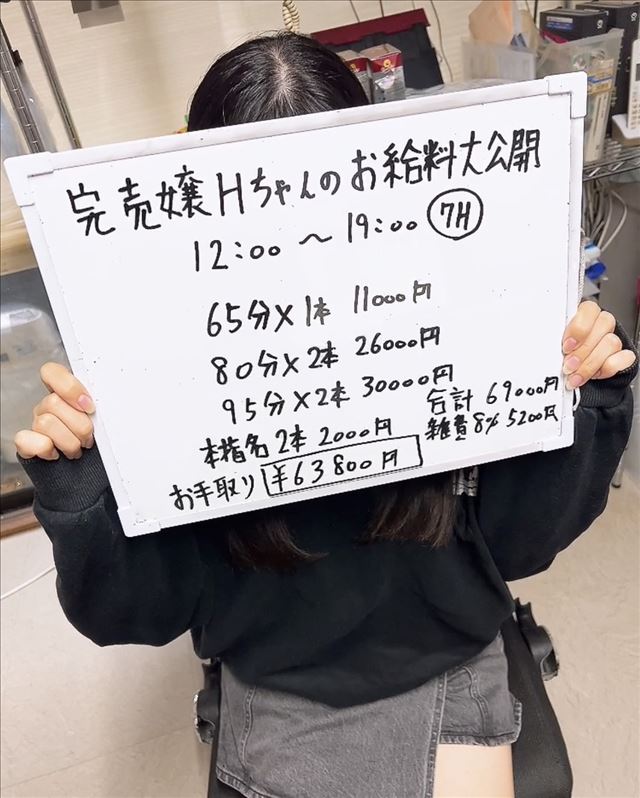 完売嬢Hちゃんのお給料大公開
12:00 〜 19:00 7H
65分×1本 11000円
80分×2本 26000円
95分×2本 30000円
本指名 2本 2000円
合計 69000円
雑費8% 5200円
お手取り ¥63800円